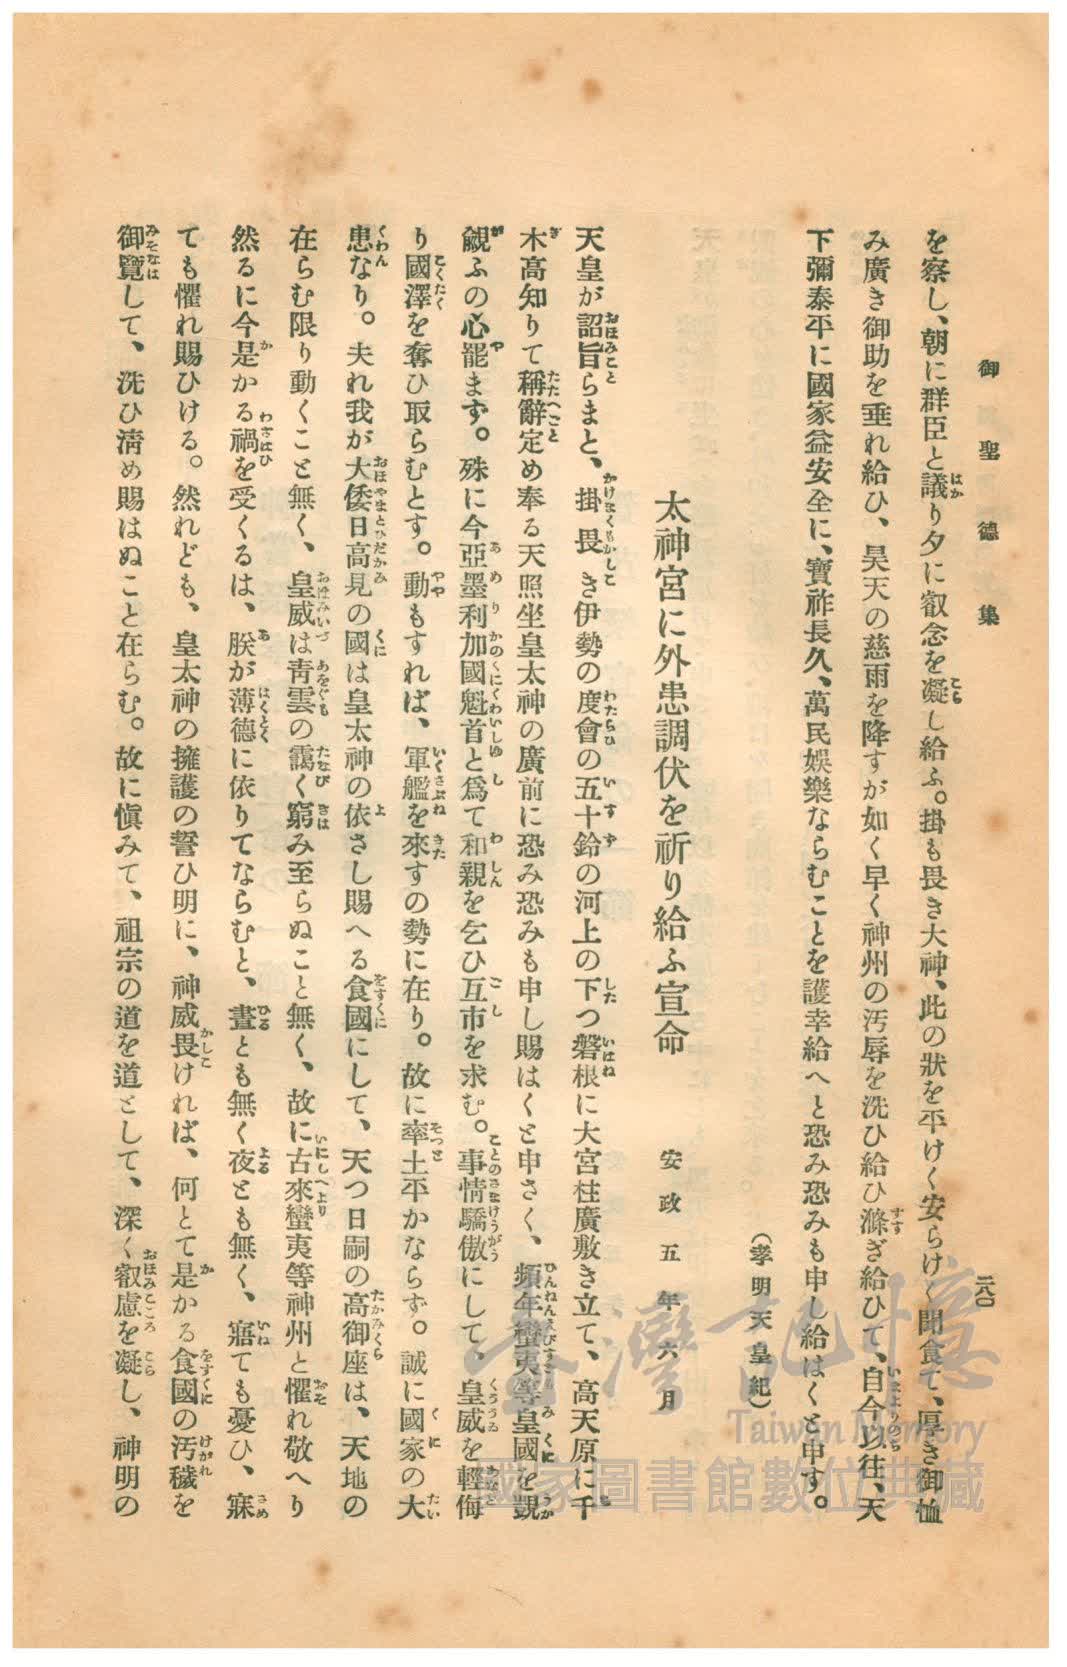 御聖德集
二八〇
を察し、朝に群臣と議り夕に叡念を凝し給ふ。掛も畏き大神、此の狀を平けく安らけく聞食て、厚き御恤
み廣き御助を垂れ給ひ、昊天の慈雨を降すが如く早く神州の汚辱を洗ひ給ひ滌ぎ給ひて、自今以往、天
下彌泰平に國家益安全に、寶祚長久、萬民娯樂ならむことを護幸給へと恐み恐みも申し給はくと申す。
(孝明天皇紀)
太神宮に外患調伏を祈り給ふ宣命 安政五年六月
天皇が詔旨らまと、掛畏き伊勢の度會の五十鈴の河上の下つ磐根に大宮柱廣敷き立て、高天原に千
木高知りて稱辭定め奉る天照坐皇太神の廣前に恐み恐みも申し賜はくと申さく、頻年蠻夷等皇國を覬
覦ふの心罷ます。殊に今亞墨利加國魁首と爲て和親を乞ひ互市を求む。事情驕傲にして、皇威を輕侮
り國澤を奪ひ取らむとす。動もすれば、軍艦を來すの勢に在り。故に率土平かならず。誠に國家の大
患なり。夫れ我が大倭日高見の國は皇太神の依さし賜へる食國にして、天つ日嗣の高御座は、天地の
在らむ限り動くこと無く、皇威は靑雲の靄く窮み至らぬこと無く、故に古來蠻夷等神州と懼れ敬へり
然るに今是かる禍を受くるは、朕が薄德に依りてならむと、晝とも無く夜とも無く、寤ても憂ひ、寐
ても懼れ賜ひける。然れども、皇太神の擁護の誓ひ明に、神威畏ければ、何とて是かる食國の汚穢を
御覽して、洗ひ淸め賜はぬこと在らむ。故に愼みて、祖宗の道を道として、深く叡慮を凝し、神明の
臺灣記憶
Taiwan Memory
國家圖書館數位典藏